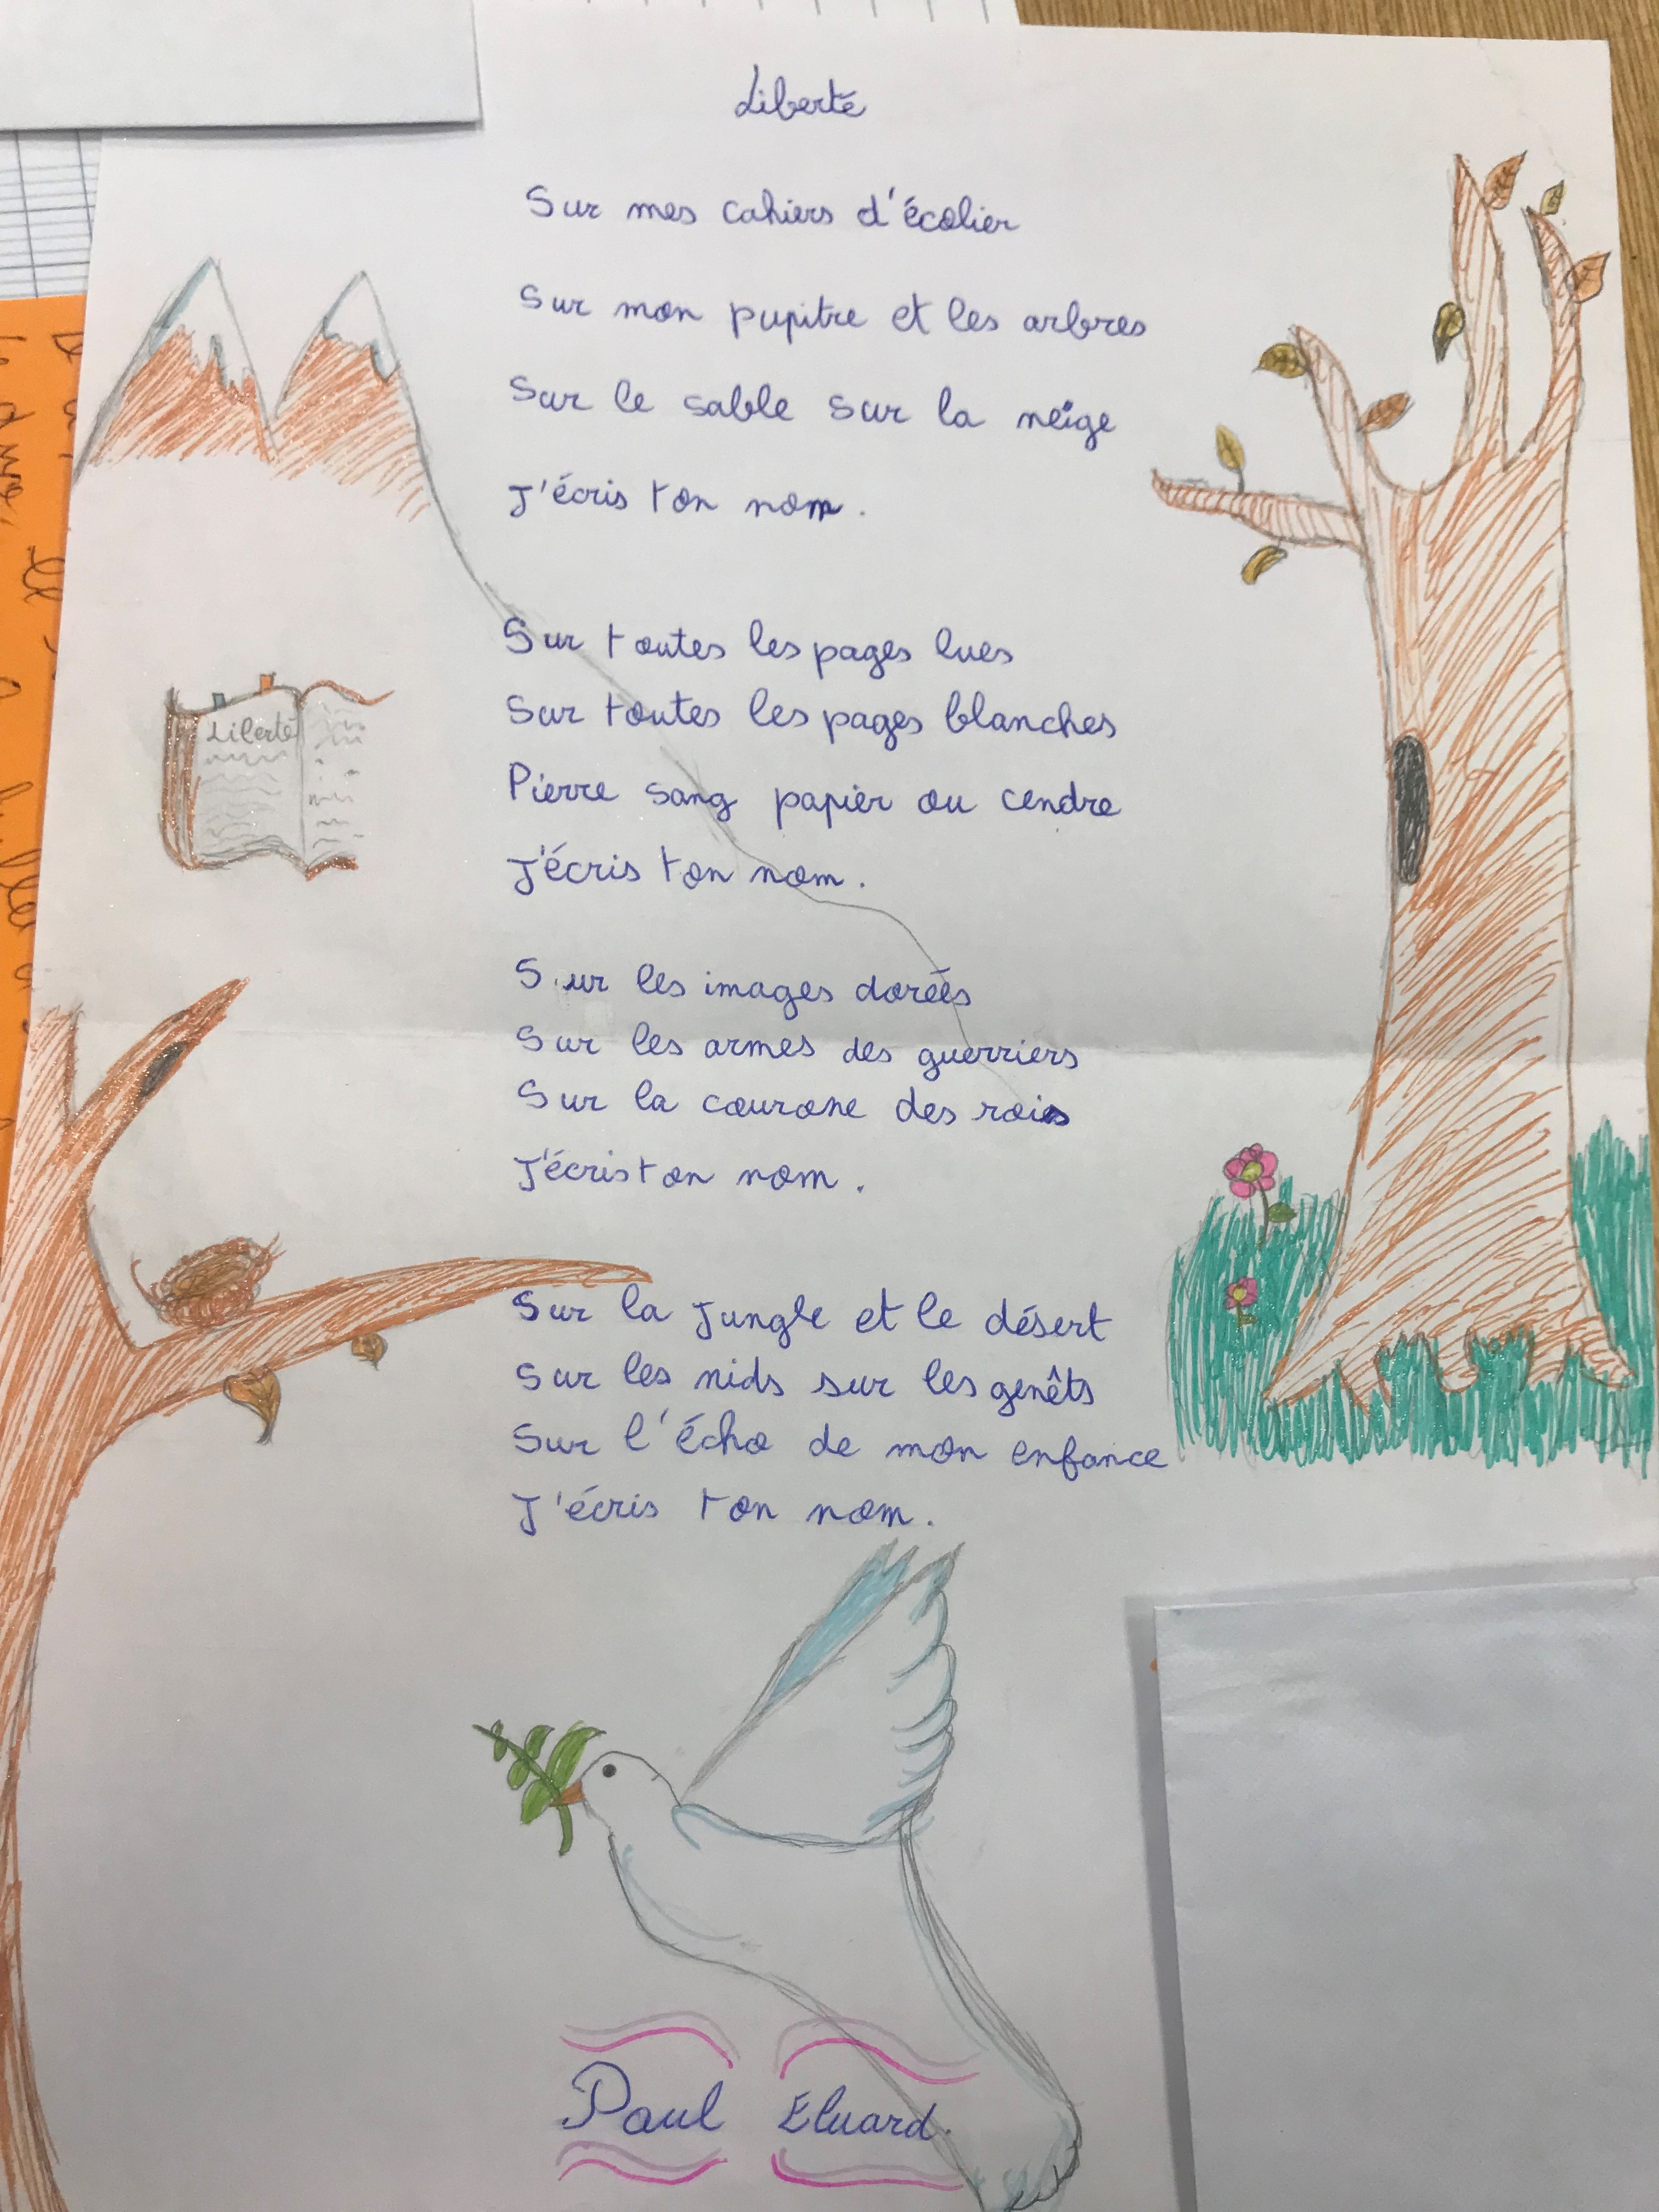 Liberté
Sur mes cahiers d'écolier
Sur mon pupitre et les arbres
Sur le sable sur la neige
J'écris ton nom.
Sur toutes les pages lues
Sur toutes les pages blanches
Pierre sang papier ou cendre
J'écris ton nom.
Liberté
Sur les images dorées
Sur les armes des guerriers
Sur la courone des rois
J'écris ton nom.
Sur la Jungle et le désert
Sur les nids sur les genêts
Sur l'écho de mon enfance
J'écris ton nom.
Paul Eluard.